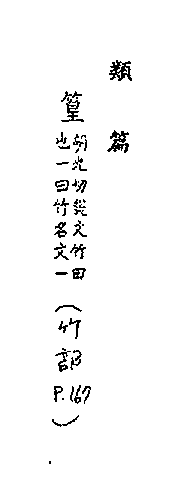 類篇
篁
胡光切說文竹田
也一曰竹名文一
(竹部
P.167)